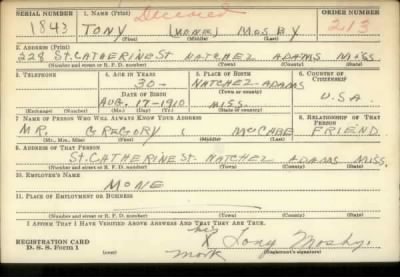 SERIAL NUMBER 1. NAME (Print) Deceased ORDER NUMBER
1843 TONY (NONE) MOSBY 213
(First) (Middle) (Last)
2. ADDRESS (Print)
228 ST. CATHERINE ST NATCHEZ ADAMS MISS.
(Number and street or R. F. D. number) (Town) (County) (State)
3. TELEPHONE 4. AGE IN YEARS 5. PLACE OF BIRTH 6. COUNTRY OF CITIZENSHIP
30- NATCHEZ-ADAMS
DATE OF BIRTH (Town or county)
AUG. 17-1910 MISS. U.S.A.
(Exchange) (Number) (Mo.) (Day) (Yr.) (State or country)
7. NAME OF PERSON WHO WILL ALWAYS KNOW YOUR ADDRESS 8. RELATIONSHIP OF THAT PERSON
MR. GREGORY MCCABE FRIEND
(Mr., Mrs., Miss) (First) (Middle) (Last)
9. ADDRESS OF THAT PERSON
ST. CATHERINE ST. NATCHEZ ADAMS MISS.
(Number and street or R. F. D. number) (Town) (County) (State)
10. EMPLOYER'S NAME
NONE
11. PLACE OF EMPLOYMENT OR BUSINESS
(Number and street or R. F. D. number) (Town) (County) (State)
I AFFIRM THAT I HAVE VERIFIED ABOVE ANSWERS AND THAT THEY ARE TRUE.
REGISTRATION CARD his
D. S. S. Form 1 X Tony Mosby.
mark (Registrant's signature)